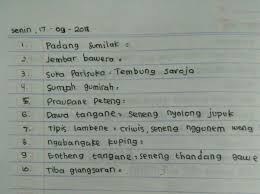 senin, 17 - 09 - 2018
1. Padang sumilak :
2. Jembar bawera :
3. Suka Parisuka : Tembung saroja
4. Sumyah gumirah :
5. Praupane Peteng :
6. Dawa tangane : seneng nyolong jupuk
7. Tipis lambene : criwis, seneng nggunem wong
8. Ngabangake kuping :
9. Entheng tangane : seneng thandang gawe
10. Tiba glangsaran :